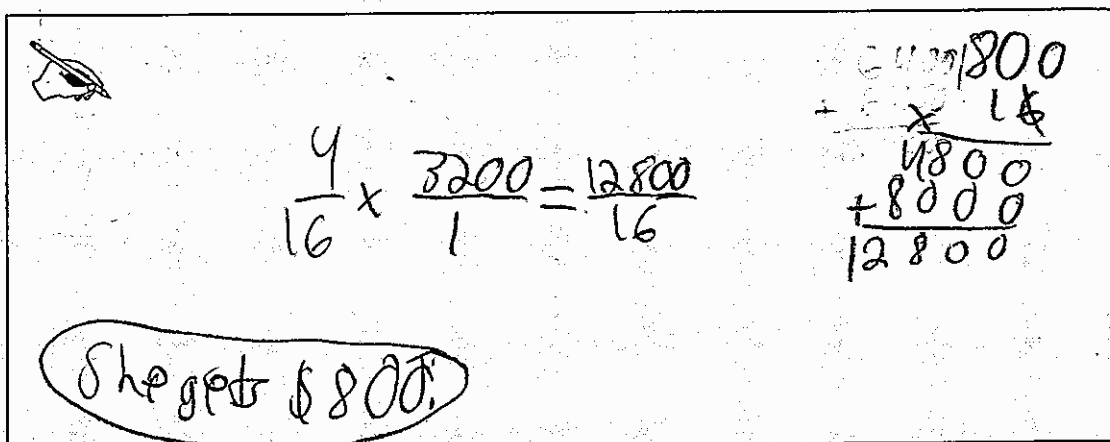 4/16 x 3200/1 = 12800/16
800
x 16
4800
+8000
12800
She gets $800.